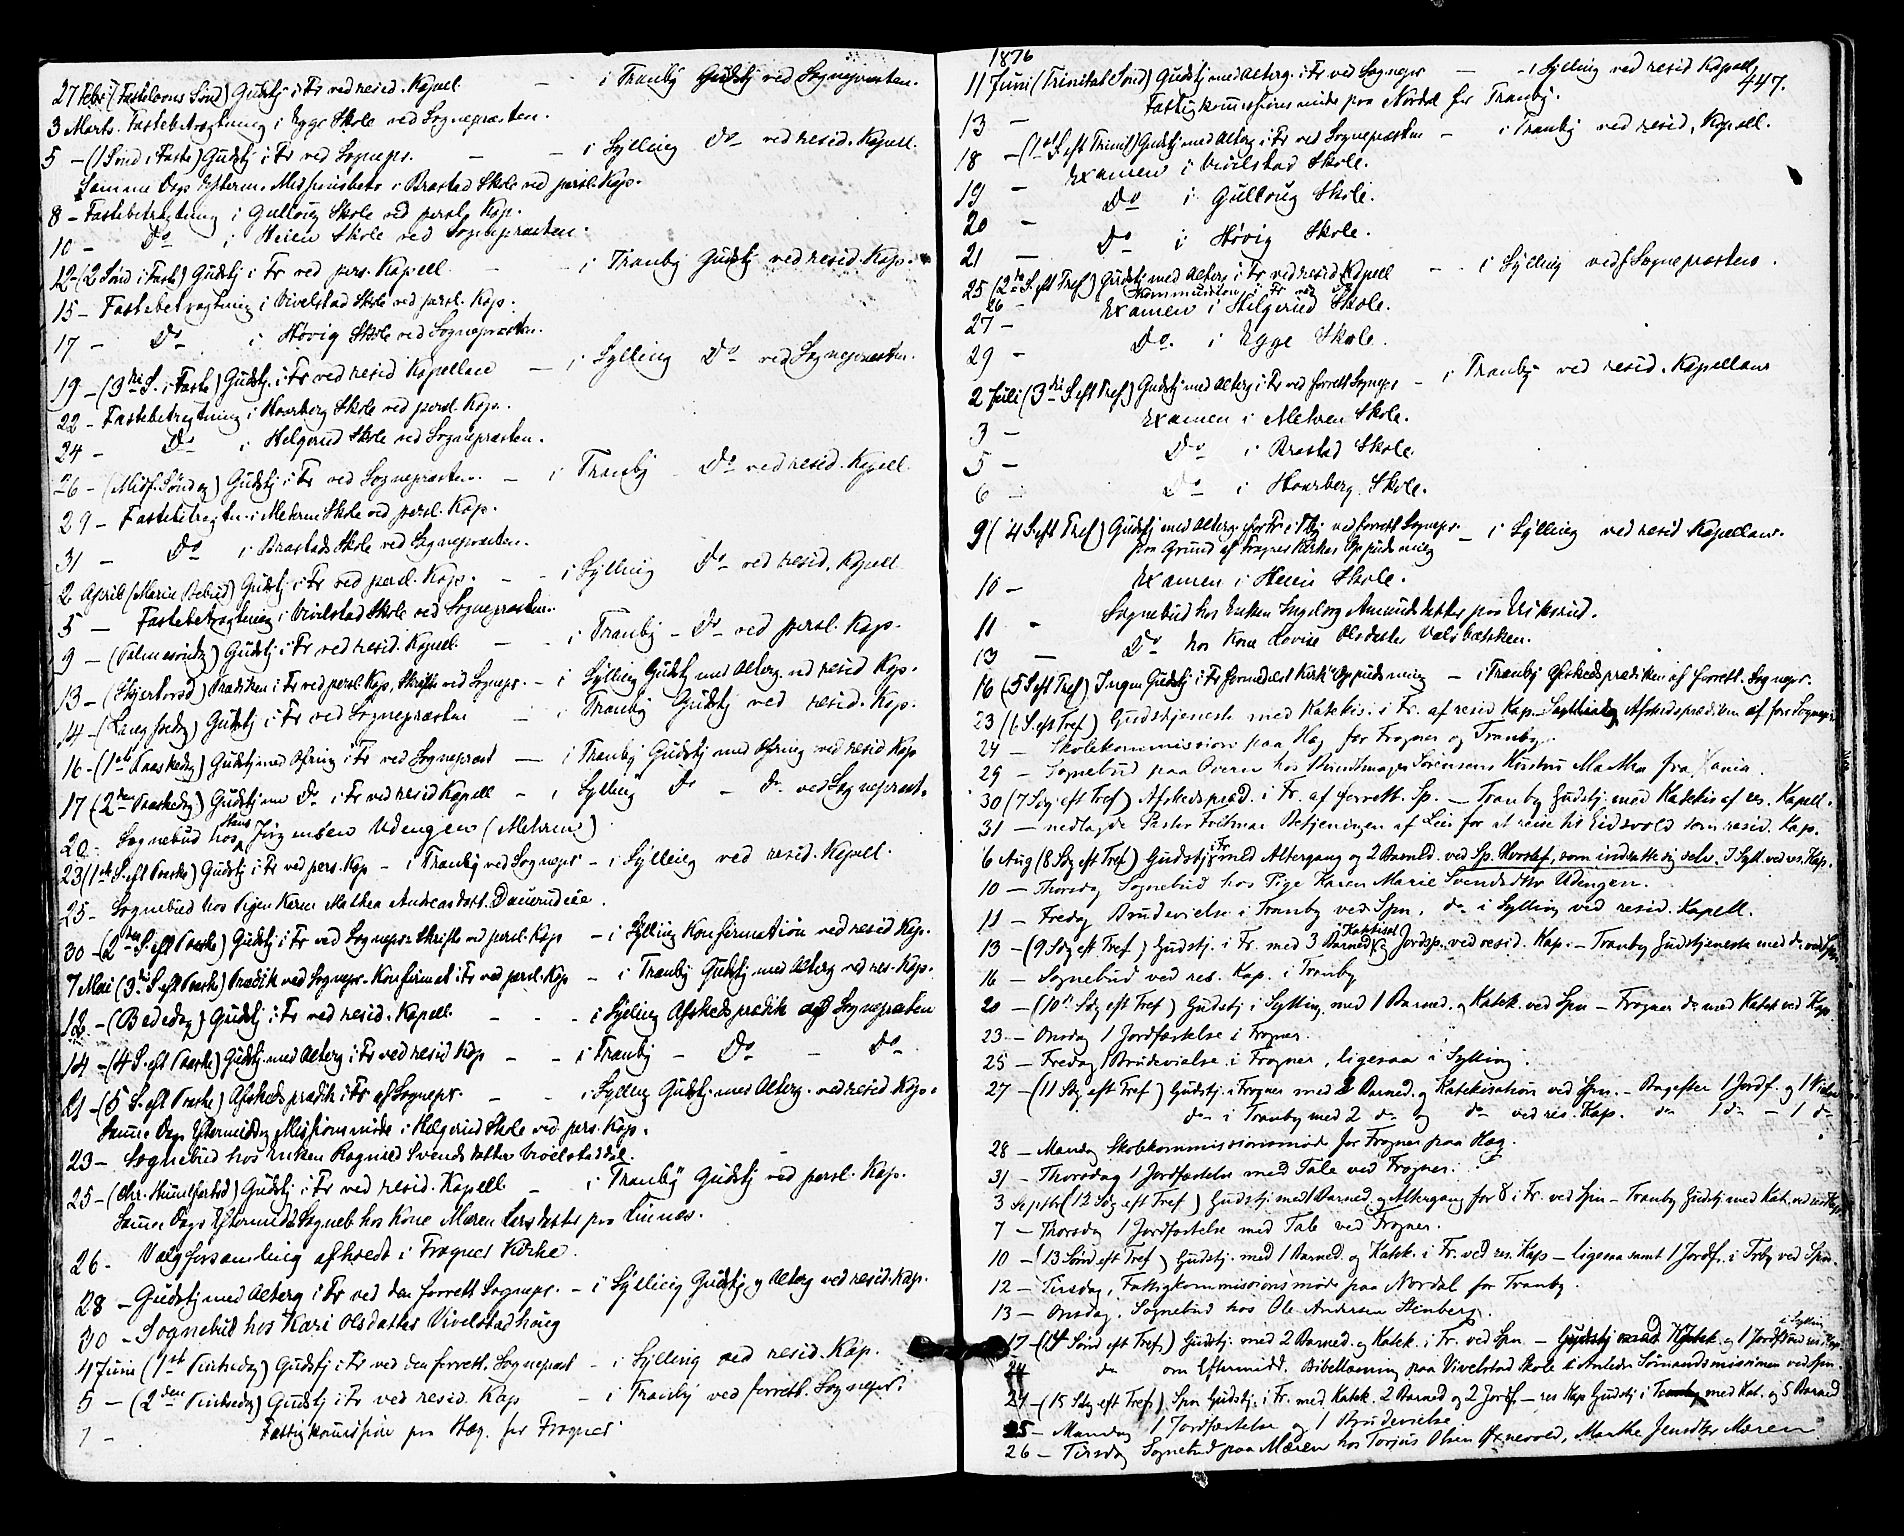 27 Febr. (Fastelavns Sønd) Gudstj i Fr ved resid. Kapell. — i Tranby Gudstj ved Sognepræsten.
3 Marts. Fastebetragtning i Egge Skole ved Sognepræsten.
5 — (1 Sønd i Faste) Gudstj i Fr ved Sognepr. — i Sylling Do ved resid. Kapell.
Samme Dags Efterm. Missionsbets i Brastad Skole ved persl. Kap.
8 — Fastebetragtning i Gullaug Skole ved persl. Kap.
10 — Do i Heien Skole ved Sognepræsten.
12 — (2 Sønd i Faste) Gudstj i Fr ved pers. Kapell — i Tranby Gudstj ved resid. Kap.
15 — Fastebetragtning i Vivelstad Skole ved persl. Kap.
17 — Do i Høvig Skole ved Sognepræsten.
19 — (3die S. i Faste) Gudstj. i Fr ved resid Kapellan — i Sylling Do ved Sognepræsten.
22 — Fastebetragtning i Haarberg Skole ved persl. Kap.
24 — Do i Helgerud Skole ved Sognepræsten.
26 — (Midf. Søndag) Gudstj i Fr ved Sognepræsten. — i Tranby Do ved resid. Kapell.
29 — Fastebetragtn. i Mehren Skole ved persl. Kap.
31 — Do i Brastad Skole ved Sognepræsten.
2 April (Mariæ Bebud) Gudstj i Fr ved persl. Kap. — i Sylling Do ved resid. Kapell
5 — Fastebetragtning i Vivelstad Skole ved Sognepræsten.
9 — (Palmesøndag) Gudstj i Fr ved resid. Kapell. — i Tranby — Do ved persl. Kap.
13 — (Skjærtorsd) Prædiken i Fr ved persl Kap, Skrifte ved Sognepr. — i Sylling Gudstj med Alterg. ved resid Kap.
14 — (Langfredag) Gudstj i Fr ved Sognepræsten — i Tranby Gudstj ved resid. Kap.
16 — (1ste Paaskedag) Gudstj med Ofring i Fr ved Sognepræst — i Tranby Gudstj med Ofring ved resid Kap
17 (2den Paaskedag) Gudstj med Do i Fr ved resid Kapell — i Sylling Do — Do ved Sognepræst.
20 — Sognebud hos Hans Jørgensen Udengen (Mehren)
23 (1ste S. eft Paaske) Gudstj i Fr ved pers. Kap — i Tranby ved Sognepr — i Sylling ved resid. Kapell.
25 — Sognebud hos Pigen Karen Mathea Andreasdatt.
30 — (2den S. eft Paaske) Gudstj i Fr ved Sognepr. Skrifte ved persl. Kap — i Sylling Konfirmation ved resid Kap.
7 Mai (3die S. eft Paaske) Prædik ved Sognepr. Konfirmat i Fr ved persl. Kap — i Tranby Gudstj med Alterg ved res. Kap.
12 — (Bededag) Gudstj i Fr ved resid. Kapell. — i Sylling Afskedsprædik Sognepræsten
14 — (4 S. eft Paaske) Gudstj. med Alterg i Fr ved resid Kap — i Tranby — Do — Do
21 — (5 S. eft Paaske) Afskedsprædik i Fr af Sognepr. — i Sylling Gudstj. med Alterg. ved resid Kap.
Samme Dags Eftermiddag Missionsmøde i Helgerud Skole ved pers. Kap.
23 — Sognebud hos Enken Ragnild Svendsdatter Vivelstaddal.
25 — (Chr. Himmelfartsd) Gudstj i Fr ved resid. Kapell — i Tranby Gudstj ved persl. Kap.
Samme Dags Eftermidd Sogneb hos Kone Maren Larsdatter paa Linnæs.
26 — Valgforsamling afholdt i Frogner Kirke.
28 — Gudstj med Alterg i Fr ved den forrett Sognepr. — i Sylling Gudstj og Alterg ved resid. Kap.
30 — Sognebud hos Kari Olsdatter Vivelstadhaug
4 Juni (1ste Pintsedag) Gudstj i Fr ved den forrett. Sognepræst — i Sylling ved resid. Kap.
5 — (2den Pintsedag) Gudstj i Fr ved resid. Kap — i Tranby ved forrett. Sognepr.
7 — Fattigkommission paa Hæg. for Frogner
1876
447.
11 Juni (Trinitat. Sønd) Gudstj med Alterg. i Fr ved Sognepr — i Sylling ved resid Kapell.
Fattigkommissionsmøde paa Nordal for Tranby.
13 —
18 — (1ste S. eft Trinit) Gudstj med Alterg i Fr ved Sognepræsten — i Tranby ved resid. Kapell.
19 — Examen i Vivelstad Skole.
20 — Do i Gullaug Skole.
21 — Do i Høvig Skole.
25 (2den S. eft Tref) Gudstj med Alterg i Fr ved resid. Kapell — i Sylling ved Sognepræsten.
26 Kommunion i Fr ved
27 — Examen i Helgerud Skole.
29 — Do. i Egge Skole.
2 Juli (3die S eft Tref) Gudstj med Alterg i Fr ved forrett Sognepr — i Tranby ved resid. Kapellan
3 — Examen i Mehren Skole.
5 — Do i Brastad Skole.
6 — Do i Haarberg Skole.
9 (4 S eft Tref) Gudstj med Alterg. for Fr i Tby ved forrett Sognepr. — i Sylling ved resid Kapellan.
paa Grund af Frogner Kirkes Oppudsning
10 — Examen i Heien Skole.
11 — Sognebud hos Enken Ingeborg Amundsdatter paa Eriksrud.
13 — Do hos Kone Lovise Olsdatter Valsbækken.
16 (5 S eft Tref) Ingen Gudstj i Fr formedelst Kirk Oppudsning — i Tranby Afskedsprædiken af forrett. Sognepr.
23 (6 S. eft Tref) Gudstjeneste med Katekis. i Fr. af resid Kap. Sylling Afskedsprædiken af forr Sognepr
24 — Skolekommission paa Hæg for Frogner og Tranby.
29 — Sognebud paa Overn hos Buntmager Sørensens Hustru Martha fra Xania.
30 (7 Sdg eft Tref) Afskedspræd. i Fr. af forrett. Sp. — Tranby Gudstj. med Katekis af res. Kapell.
31 — nedlagde Pastor Freitman Betjeningen af Lier for at reise til Eidsvold som resid. Kap.
6 Aug (8 Sdg eft Tref) Gudstj i Fr. med Altergang og 2 Barned. ved Sp. Hvoslef, som indsatte sig selv. I Syll. ved res. Kap.
10 — Thorsdag Sognebud hos Pige Karen Marie Svendsdtr Udengen.
11 — Fredag Brudevielse i Tranby ved Spn, do i Sylling ved resid. Kapell.
13 — (9 Sdg eft Tref) Gudstj. i Fr. med 3 Barned, Katekisat. og Jordsp. ved resid. Kap. — Tranby Gudstjeneste med do ved Spn.
16 — Sognebud ved res. Kap. i Tranby
20 — (10n Sdg eft Tref) Gudstj i Sylling med 1 Barned. og Katek. ved Spn — Frogner do med Katek ved Kap.
23 — Onsdag 1 Jordfæstelse i Frogner.
25 — Fredag Brudevielse i Frogner, ligesaa i Sylling.
27 — (11 Sdg eft Tref) Gudstj. i Frogner med 2 Barned. og Katekisation ved Spn. — Bagefter 1 Jordf. og 1 Vielse
do i Tranby med 2 do og do ved res. Kap. do 1 do — 1 do
28 — Mandag Skolekommissionsmøde for Frogner paa Hæg.
31 — Thorsdag 1 Jordfæstelse med Tale ved Frogner.
3 Septbr (12 Sdg eft Tref) Gudstj. med 1 Barned. og Altergang for 8 i Fr. ved Spn — Tranby Gudstj med Kat. ved res Kap
7 — Thorsdag 1 Jordfæstelse med Tale ved Frogner.
10 — (13 Sønd eft Tref) Gudstj. med 1 Barned. og Katek. i Fr. ved res. Kap — ligesaa samt 1 Jordf. i Trby ved Spn.
12 — Tirsdag, Fattigkommissionsmøde paa Nordal for Tranby.
13 — Onsdag. Sognebud hos Ole Andersen Stenberg.
17 — (14 Sønd eft Tref) Gudstj. med 2 Barned. og Katek. i Fr. ved Spn — Gudstj med Katek. og 1 Jordf i Sylling ved res Kap
do om Eftermidd. Bibellæsning paa Vivelstad Skole i Anledn Sømandsmissionen ved Spn
24 — (15 Sdg eft Tref) Spn Gudstj. i Fr. med Katek. 2 Barned og 2 Jordf. — res Kap Gudstj i Tranby med Kat. og 5 Barned
25 — Mandag 1 Jordfæstelse og 1 Brudevielse.
26 — Tirsdag Sognebud paa Mæren hos Torjus Olsen Øxnevold, Marthe Jensdtr Mæren